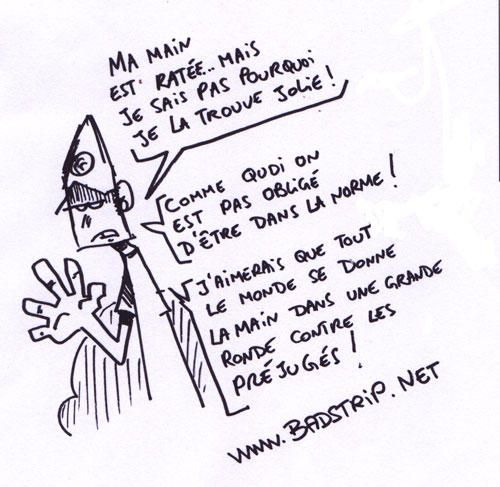 MA MAIN
EST RATÉE... MAIS
JE SAIS PAS POURQUOI
JE LA TROUVE JOLIE !
COMME QUOI ON
EST PAS OBLIGÉ
D'ÊTRE DANS LA NORME !
J'AIMERAIS QUE TOUT
LE MONDE SE DONNE
LA MAIN DANS UNE GRANDE
RONDE CONTRE LES
PRÉJUGÉS !
WWW.BADSTRIP.NET